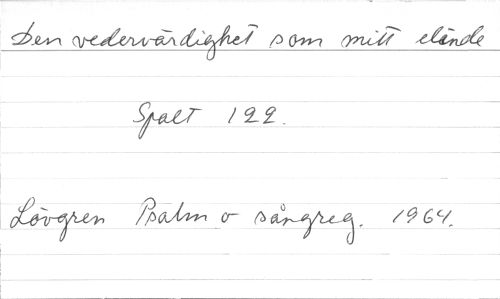 Den vedervärdighet som mitt elände
Spalt 122.
Lövgren Psalm o sångreg. 1964.